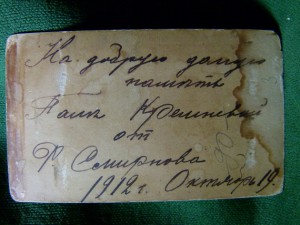 На добрую долгую
память
Тамѣ Кремневой
от
Ф Смирнова
1912 г. Октябрь 19.